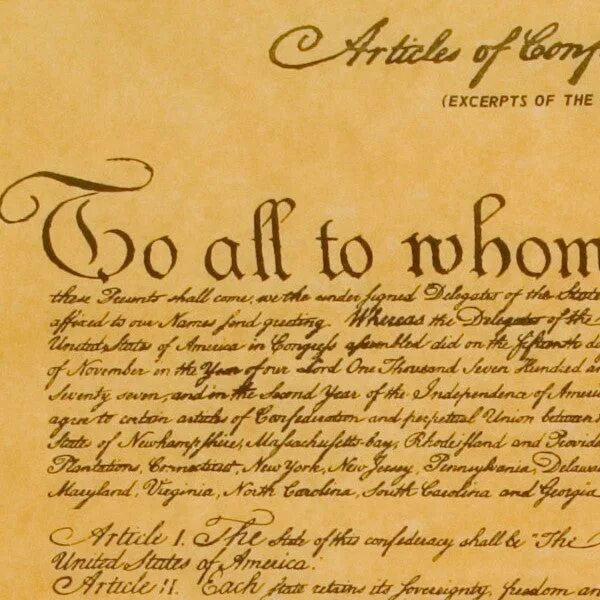 Articles of Conf
(EXCERPTS OF THE
To all to whom
these Presents shall come, we the under signed Delegates of the State
affixed to our Names send greeting. Whereas the Delegates of the
United States of America in Congress assembled did on the fifteenth d
of November in the Year of our Lord One Thousand Seven Hundred an
Seventy seven, and in the Second Year of the Independence of Americ
agree to certain articles of Confederation and perpetual Union between
States of Newhampshire, Massachusetts-bay, Rhodeisland and Provide
Plantations, Connecticut, New York, New Jersey, Pennsylvania, Delawa
Maryland, Virginia, North Carolina, South Carolina and Georgia
Article I. The Stile of this confederacy shall be "The
United States of America.
Article II. Each state retains its sovereignty, freedom an